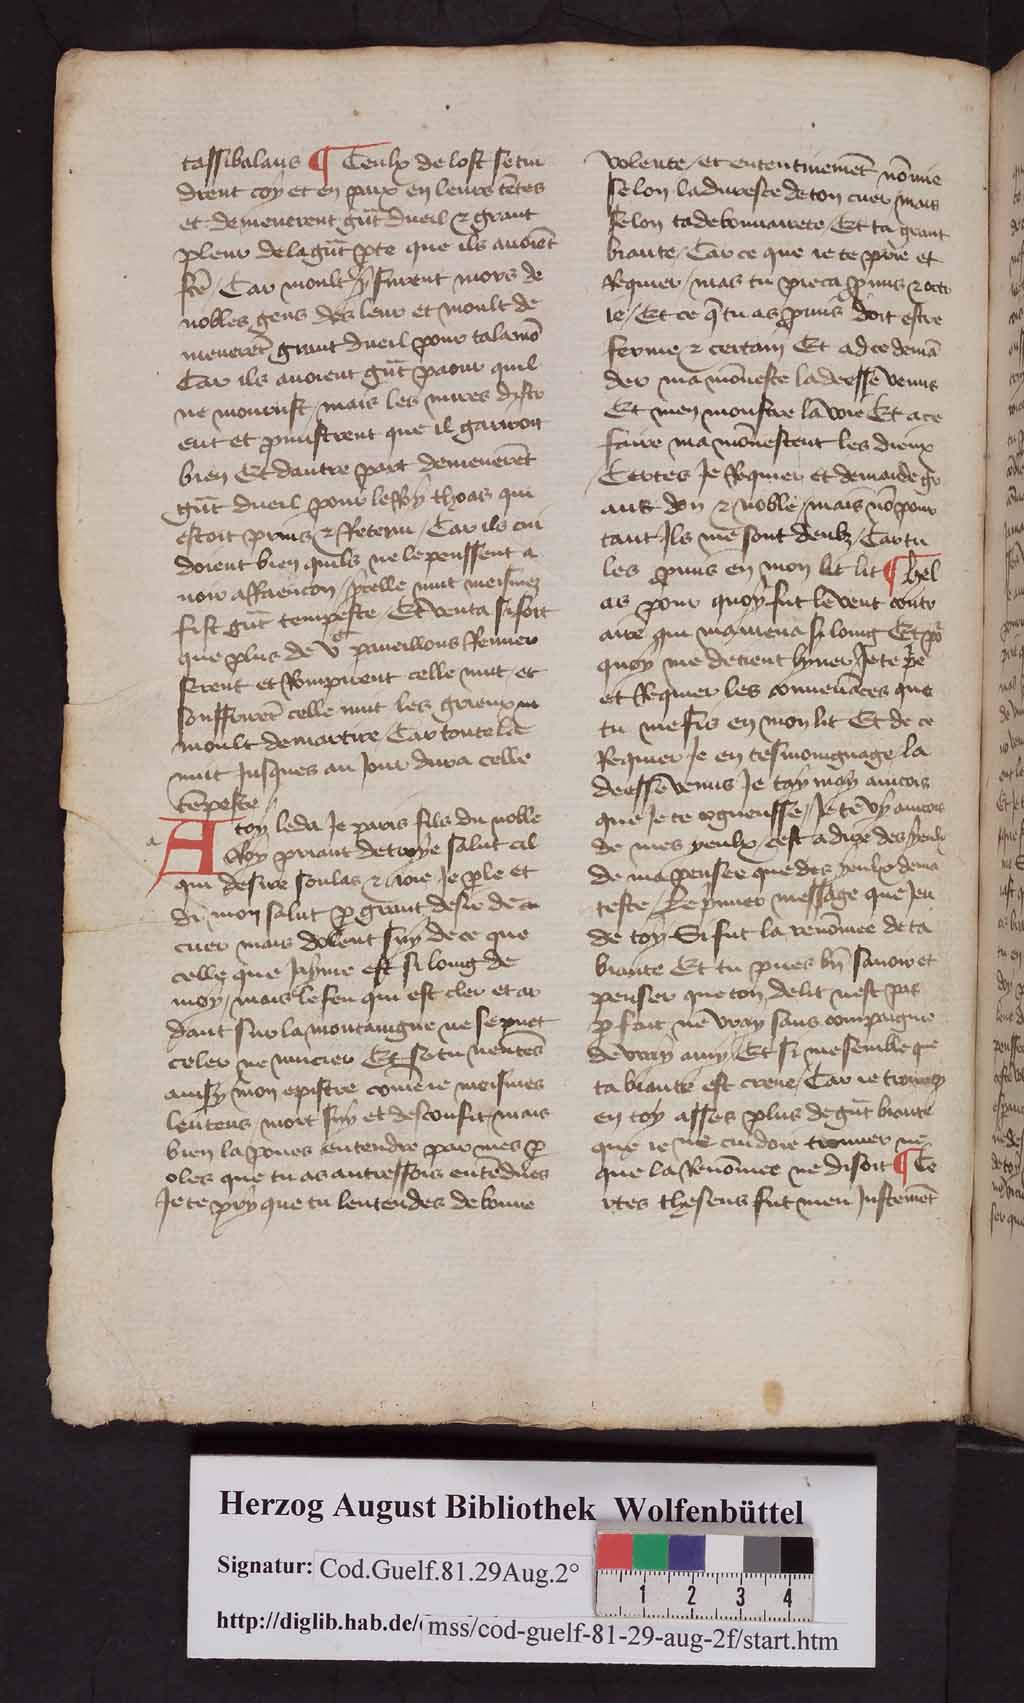 cassibalans ¶ Ceulx de lost se tin
drent coy et en paix en leurs tētes
et demenerent gūt dueil & grant
pleur de la gūt pte que ils auoiēt
fcē / Car moult y furent mors de
nobles gens des leur et moult de
menerēt grant dueil pour talamō
Car ils auoient gūt paour quil
ne mourust / mais les mires distr
ent et pmistrent que il gariroit
bien Et dautre part demenerēt
gūt dueil pour le Roy thoas qui
estoit prins & Retenu / Car ils cui
doient bien quils ne le peussent a
uoir a Raencon / ycelle nuit meismes
fist gūt tempeste / Et venta si fort
que plus de vᶜ paueillons Renuer
serent et Rompirent celle nuit et
souffrirēt celle nuit les grieux
moult de martire / Car toute la
nuit Jusques au Jour dura celle
tēpeste //
A toy leda Je paris filz du noble
Roy priant de troye salut cil
qui desire soulas & ioie Je ple et
di mon salut p grant desir de
cuer mais dolent suy de ce que
celle que Jayme est si loing de
moy / mais le feu qui est cler et ar
dant sur la montaingne ne se puet
celer ne mucier Et se tu nentēs
ainsy mon epistre cōme ie meismes
lentens mort suy et desconfit mais
bien la poues entendre par mes p
oles que tu as autreffois entēdues
Je te pry que tu lentendes de bonne
volente / et ententiuemēt nō mie
selon la duresce de ton cuer / mais
selon ta debonnairete / Et ta grant
biaute / Car ce que ie te prie et
Requier / mas tu pieca pmis & octr
ie / Et ce q tu as pmis doit estre
ferme & certain Et ad ce demā
der ma mōneste la deesse venus
Et men monstre la voie Et a ce
faire ma mōnestent les dieux
Certes Je Requier et demande gr
ant don & noble / mais nō pour
tant Ils me sont deubz / Car tu
les pmis en mon lit lit ¶ hel
as pour quoy fut le vent contr
aire qui mamena si loing Et po
quoy me detient yuer Je te prie
et Requier les conuenāces que
tu me fis en mon lit Et de ce
Requier Je en tesmoingnage la
deesse venus Je toy moy aincois
que Je te cogneusse // Je te vy aincois
de mes yeulx cest a dire des yeulx
de ma pensee que des yeulx de ma
teste / Le pmier message que Jeu
de toy Si fut la renōmee de ta
biaute Et tu pues bn sauoir et
penser que ton delit nest pas
pfait ne vray sans compaignie
de vray amy / Et si me semble que
ta biaute est creue / Car ie trouuay
en toy asses plus de gūt biaute
que ie ne cuidoie trouuer ne
que la Renōmee ne disoit ¶ Ce
rtes theseus fut meu Justemēt
Herzog August Bibliothek Wolfenbüttel
Signatur: Cod.Guelf.81.29Aug.2°
1 2 3 4
http://diglib.hab.de/mss/cod-guelf-81-29-aug-2f/start.htm